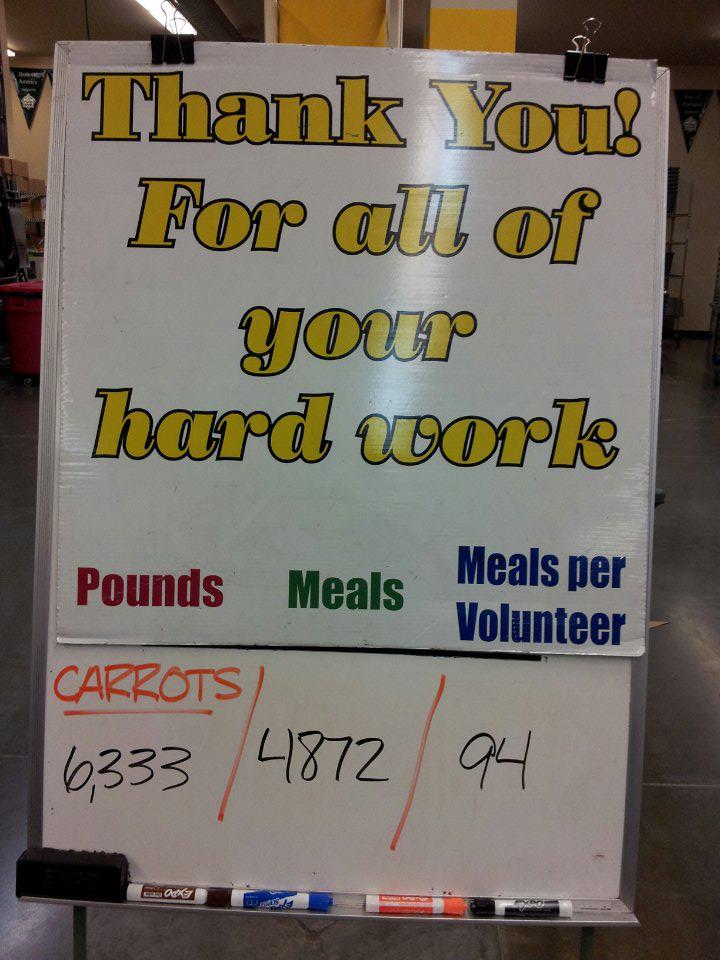 Thank You!
For all of
your
hard work
Pounds Meals Meals per
Volunteer
CARROTS
6,333 / 4872 / 94
EXPO
EXPO